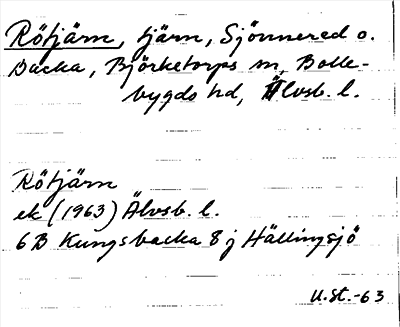 Rötjärn, tjärn, Sjönnered o.
Backa, Björketorps sn, Bolle-
bygds hd, Älvsb. l.
Rötjärn
ek (1963) Älvsb. l.
6B Kungsbacka 8j Hällingsjö
U.St.-63